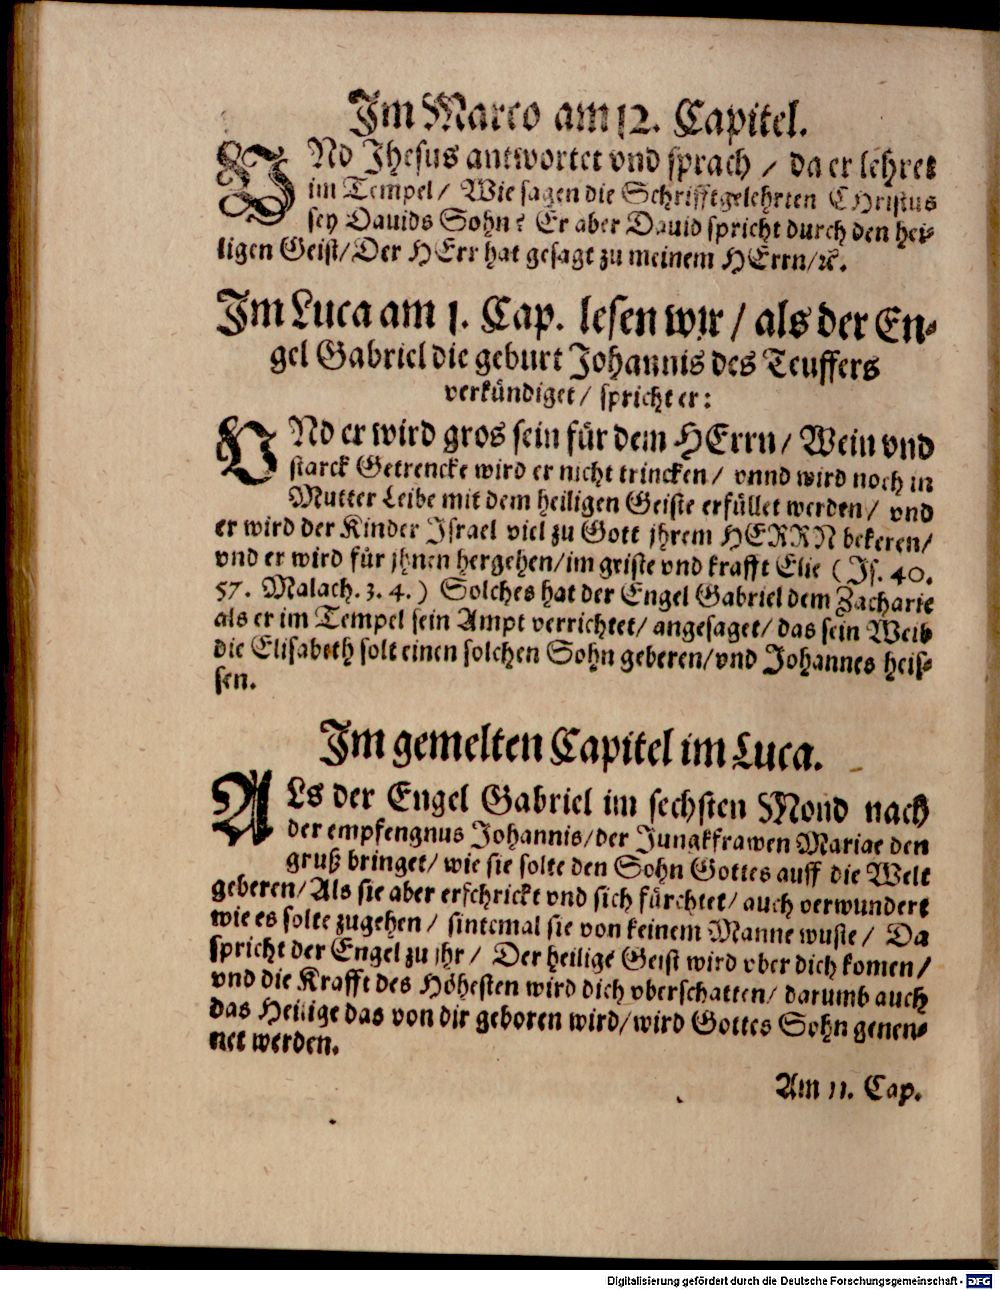 Im Marco am 12. Capitel.
VNd Jhesus antwortet vnd sprach / da er lehret
im Tempel / Wie sagen die Schrifftgelehrten CHristus
sey Dauids Sohn? Er aber Dauid spricht durch den hei-
ligen Geist/Der HErr hat gesagt zu meinem HErrn/ꝛc.
Im Luca am 1. Cap. lesen wir / als der En-
gel Gabriel die geburt Johannis des Teuffers
verkündiget / spricht er:
VNd er wird gros sein für dem HErrn / Wein vnd
starck Getrencke wird er nicht trincken / vnnd wird noch in
Mutter Leibe mit dem heiligen Geiste erfüllet werden / vnd
er wird der Kinder Israel viel zu Gott jhrem HERRN bekeren/
vnd er wird für jhnen hergehen/im geiste vnd krafft Elie ( Js. 40.
57. Malach. 3. 4. ) Solches hat der Engel Gabriel dem Zacharie
als er im Tempel sein Ampt verrichtet/ angesaget/ das sein Weib
die Elisabeth solt einen solchen Sohn geberen/vnd Johannes heis-
sen.
Im gemelten Capitel im Luca.
ALs der Engel Gabriel im sechsten Mond nach
der empfengnus Johannis/der Jungkfrawen Mariae den
gruß bringet/ wie sie solte den Sohn Gottes auff die Welt
geberen/Als sie aber erschrickt vnd sich fürchtet/ auch verwundert
wie es solte zugehen / sintemal sie von keinem Manne wuste / Da
spricht der Engel zu jhr / Der heilige Geist wird vber dich komen/
vnd die Krafft des Höhesten wird dich vberschatten/ darumb auch
das Heilige das von dir geboren wird/wird Gottes Sohn genen-
net werden.
Am 11. Cap.
Digitalisierung gefördert durch die Deutsche Forschungsgemeinschaft - DFG